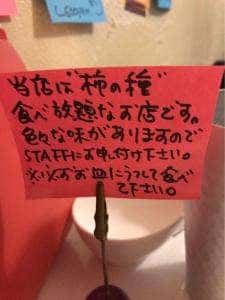 当店は"柿の種"
食べ放題なお店です。
色々な味がありますので
STAFFにお申し付け下さい。
※必ずお皿にうつして食べ
て下さい。